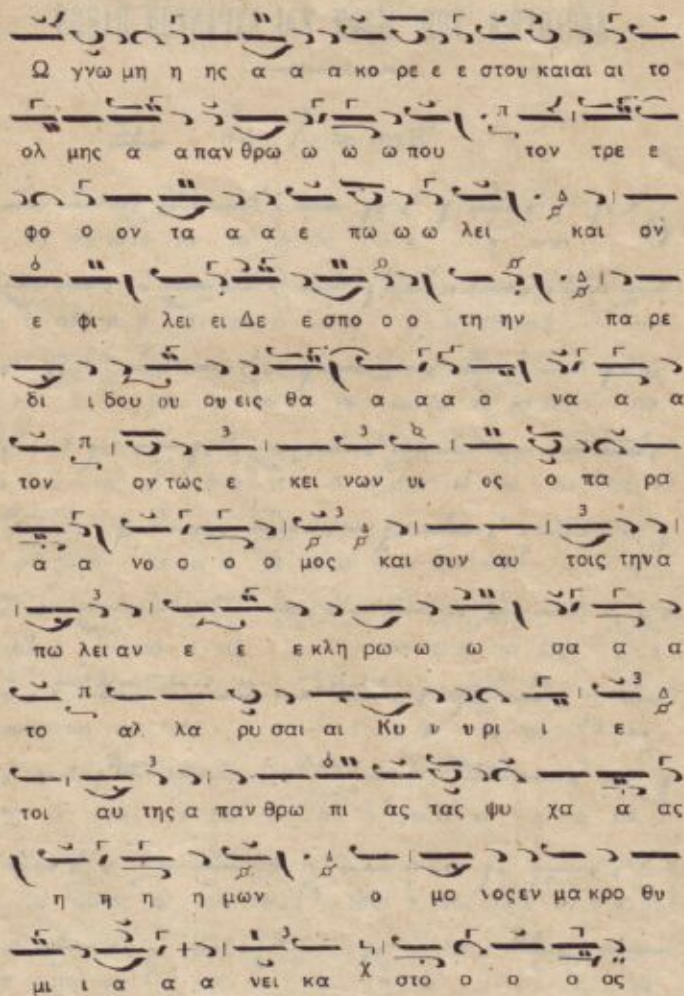 Ω γνω μη η ης α α α κο ρε ε ε στου και αι αι το
ολ μης α α παν θρω ω ω ω που τον τρε ε
φο ο ον τα α α ε πω ω ω λει και ον
ε φι λει ει Δε ε σπο ο ο τη ην πα ρε
δι ι δου ου ου εις θα α α α α να α α
τον ον τως ε κει νων υι ος ο πα ρα
α α νο ο ο ο μος και συν αυ τοις την α
πω λει αν ε ε ε κλη ρω ω ω σα α α
το αλ λα ρυ σαι αι Κυ υ υ ρι ι ε
τοι αυ της α παν θρω πι ας τας ψυ χα α ας
η η η η μων ο μο νος εν μα κρο θυ
μι ι α α α νει κα στο ο ο ο ος